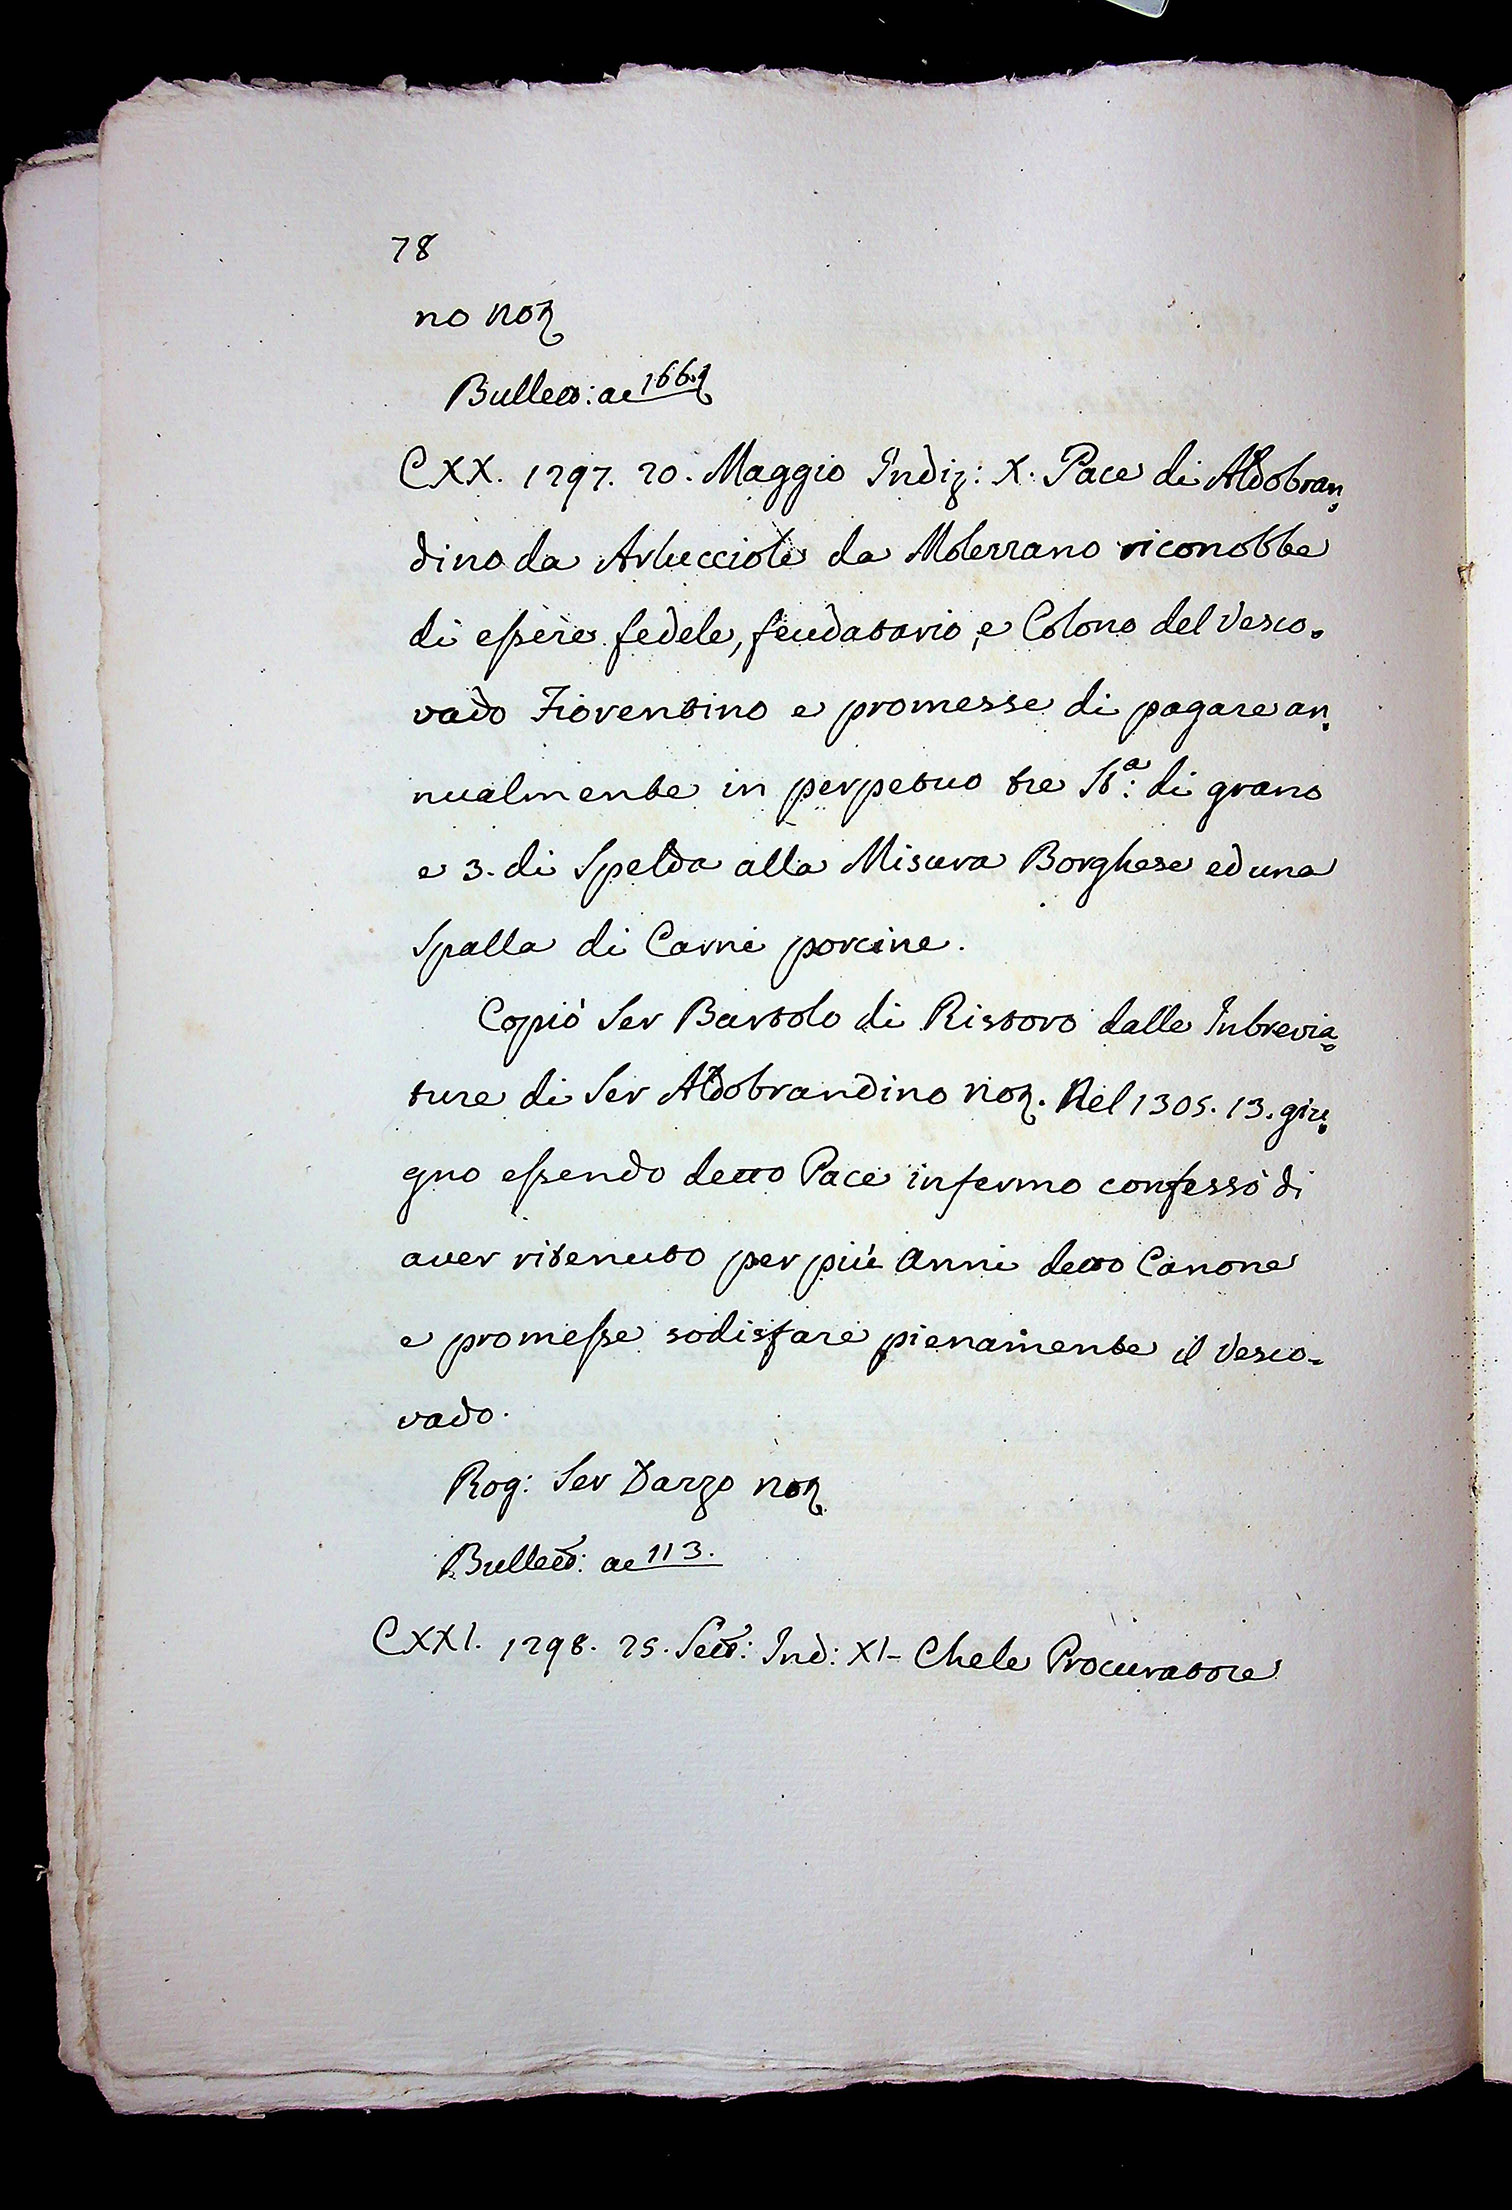 78
no noz
Bullett: ac 166.
CXX. 1297. 20. Maggio Indiz: X. Pace di Aldobran,
dino da Arlucciole da Molezzano riconobbe
di essere fedele, feudatario, e Colono del Vesco,
vado Fiorentino e promesse di pagare an,
nualmente in perpetuo tre St.ª: di grano
e 3. di Spelda alla Misura Borghese ed una
Spalla di Carni porcine.
Copiò Ser Bartolo di Ristoro dalle Inbrevia=
ture di Ser Aldobrandino noz. Nel 1305. 13. giu,
gno essendo detto Pace infermo confessò di
aver ritenuto per più Anni detto Canone
e promesse sodisfare pienamente il Vesco=
vado.
Rog: Ser Dazzo noz
Bullett: ac 113.
CXXI. 1298. 25. Sett: Ind: XI- Chele Procuratore